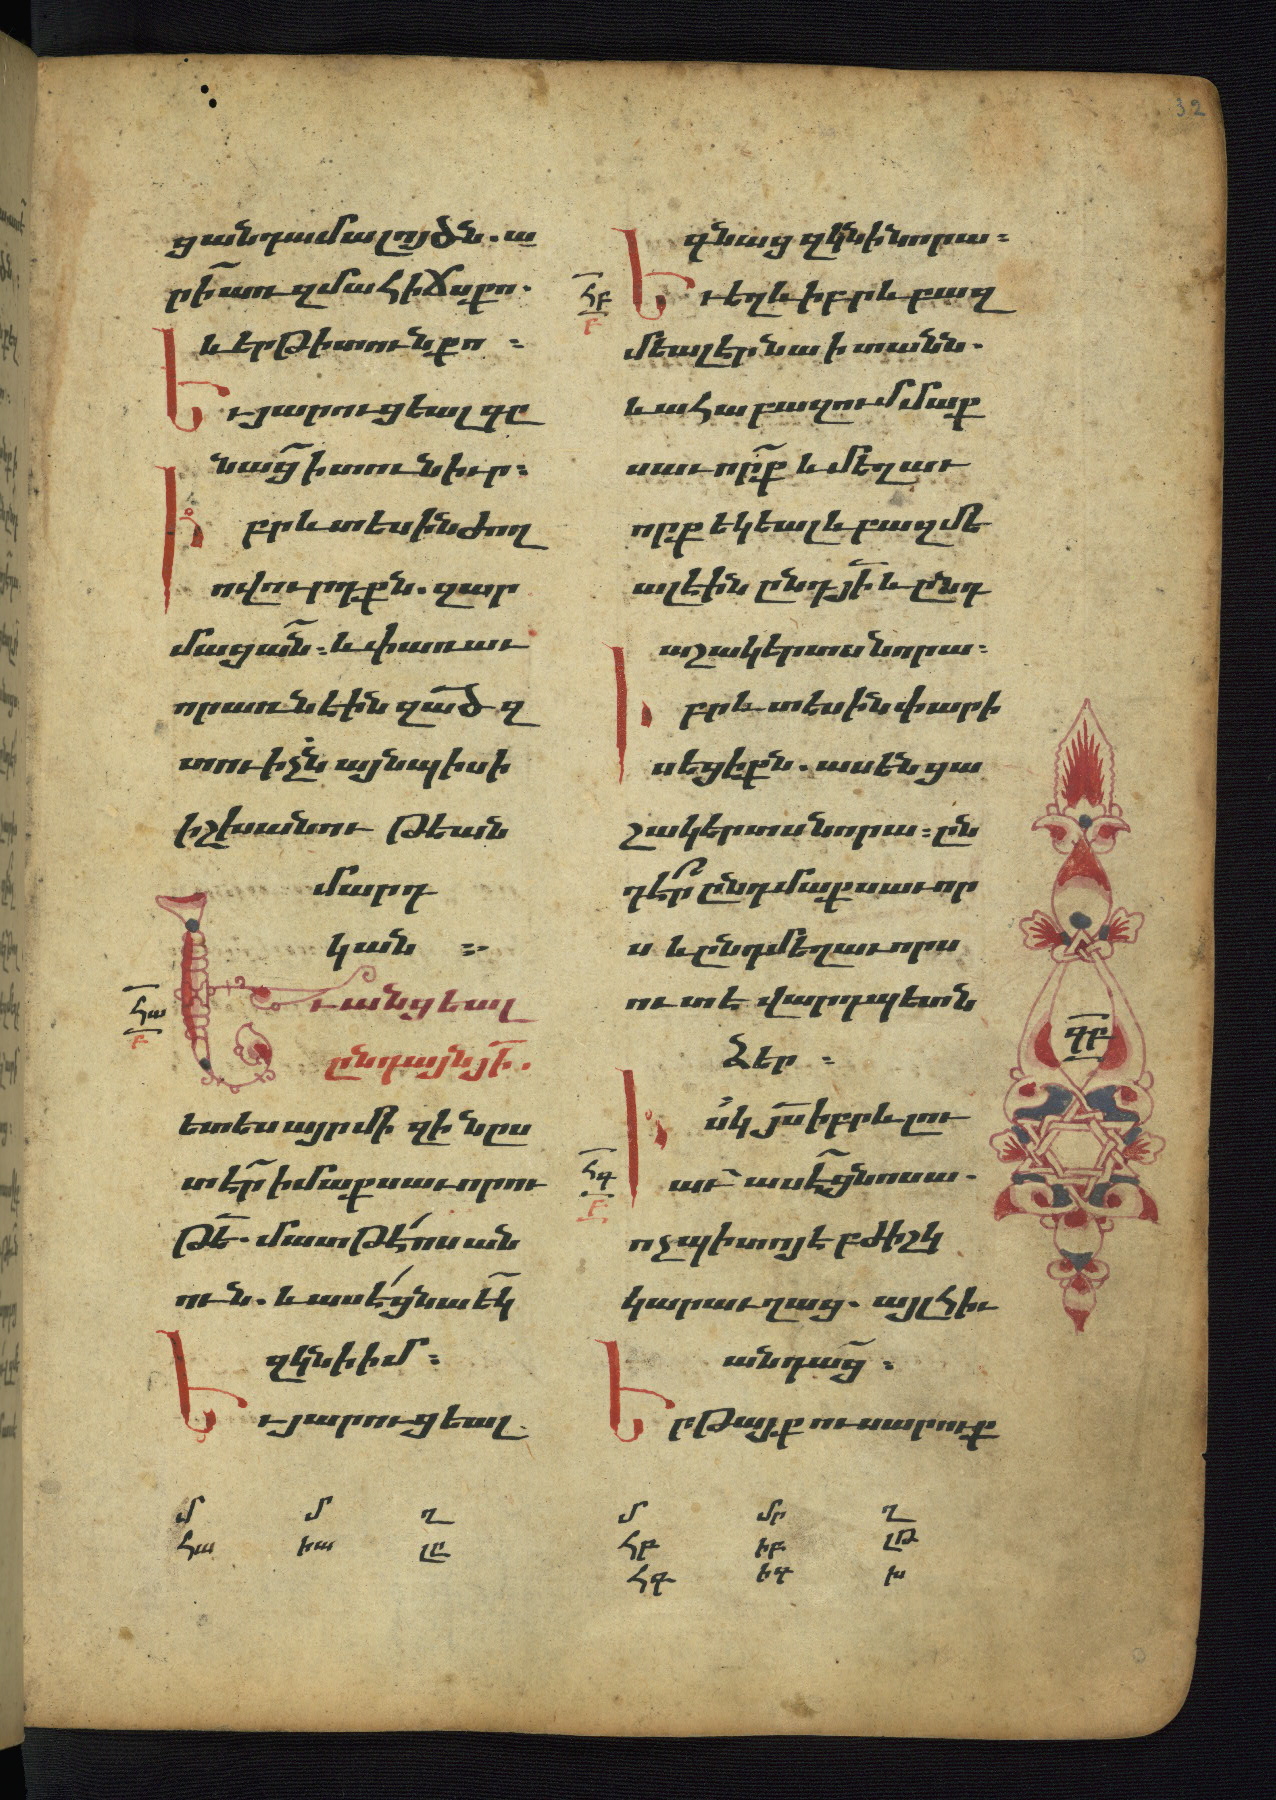 32
ցանդամալոյծն. ա
րի՛ առ զմահիճս քո.
և երթ ի տուն քո :
Եւ յարուցեալ գը
նաց ի տուն իւր :
Իբրև տեսին ժող
ովուրդքն. զար
մացան : և փառաւ
որառնէին զած զ
տուիչն այնպիսի
իշխանու թեան
մարդ
կան :
Եւ անցեալ
ընդ այն յի.
ետես այր մի զի նըս
տէր ի մաքսաւորու
թե. մատթէոս ան
ուն. և ասէ ցնա եկ
զկնի իմ :
Եւ յարուցեալ
գնաց զկնի նորա :
Եւ եղև իբրև բազ
մեալ էր նա ի տանն.
և ահա բազում մաք
սաւորք և մեղաւ
որք եկեալ և բազմե
ալ էին ընդ յի և ընդ
աշակերտս նորա :
Իբրև տեսին փարի
սեցիքն. ասեն ցա
շակերտս նորա : ըն
դէր ընդ մաքսաւոր
ս և ընդ մեղաւորս
ուտէ վարդպետն
Ձեր :
Իսկ յս իբրև լու
աւ ասէ ցնոսա.
ոչ պիտոյ է բժիշկ
կարաւղաց. այլ հիւ
անդաց :
Երթայք ուսարուք
ՀԱ
Բ
ՀԲ
Բ
ՀԳ
Բ
ԳԲ
մ մ ղ
հա իա լը
մ մր ղ
հբ իբ լթ
հգ իգ խ